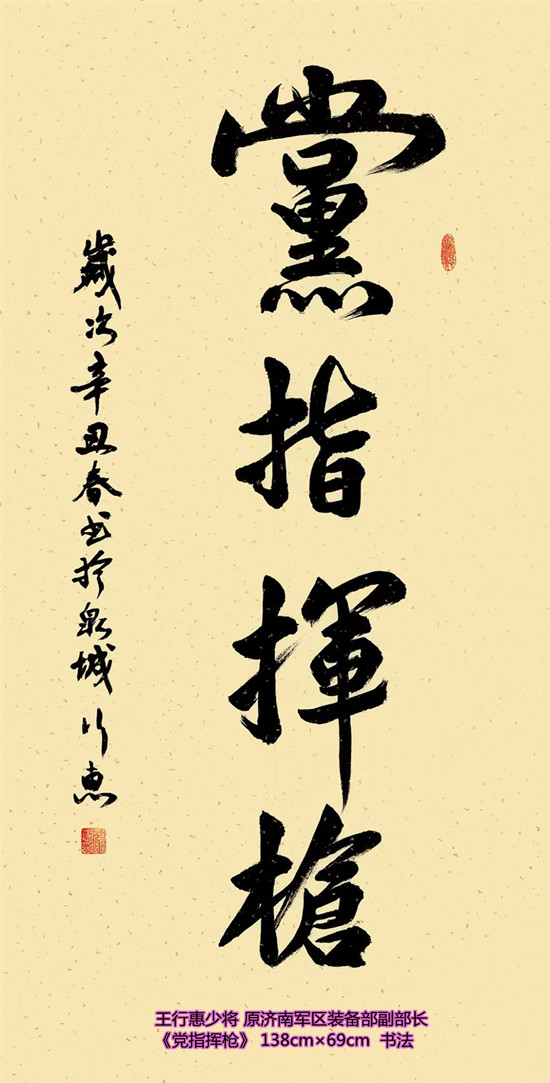 黨指揮槍
歲次辛丑春书於泉城行惠
王行惠少将 原济南军区装备部副部长
《党指挥枪》 138cm×69cm 书法